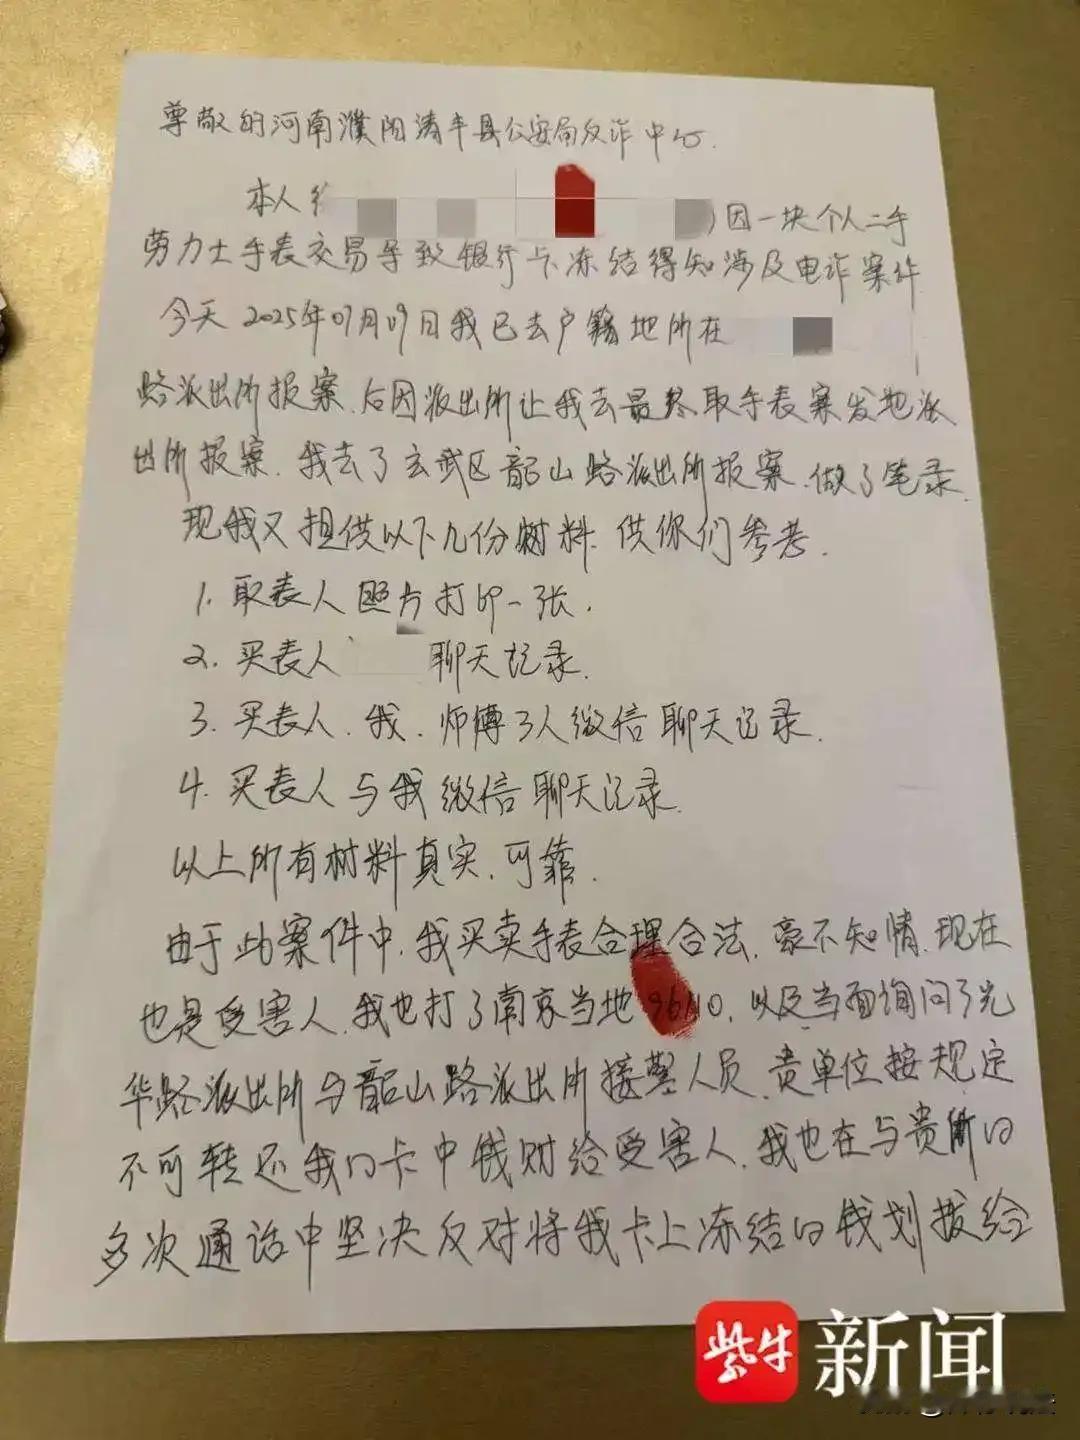 尊敬的河南濮阳清丰县公安局反诈中心.
本人 )因一块个人二手
劳力士手表交易导致银行卡冻结得知涉及电诈案件
今天2025年07月09日我已去户籍地所在
路派出所报案.后因派出所让我去最终取手表案发地派
出所报案.我去了玄武区韶山路派出所报案.做了笔录.
现我又提供以下几份材料.供你们参考.
1.取表人照片打印一张.
2.买表人 聊天记录.
3.买表人.我.师傅3人微信聊天记录.
4.买表人与我微信聊天记录.
以上所有材料真实.可靠.
由于此案件中.我买卖手表合理合法.豪不知情.现在
也是受害人.我也打了南京当地96110.以及当面询问了光
华路派出所与韶山路派出所接警人员.贵单位按规定
不可转还我的卡中钱财给受害人.我也在与贵所的
多次通话中坚决反对将我卡上冻结的钱划拨给
紫牛新闻